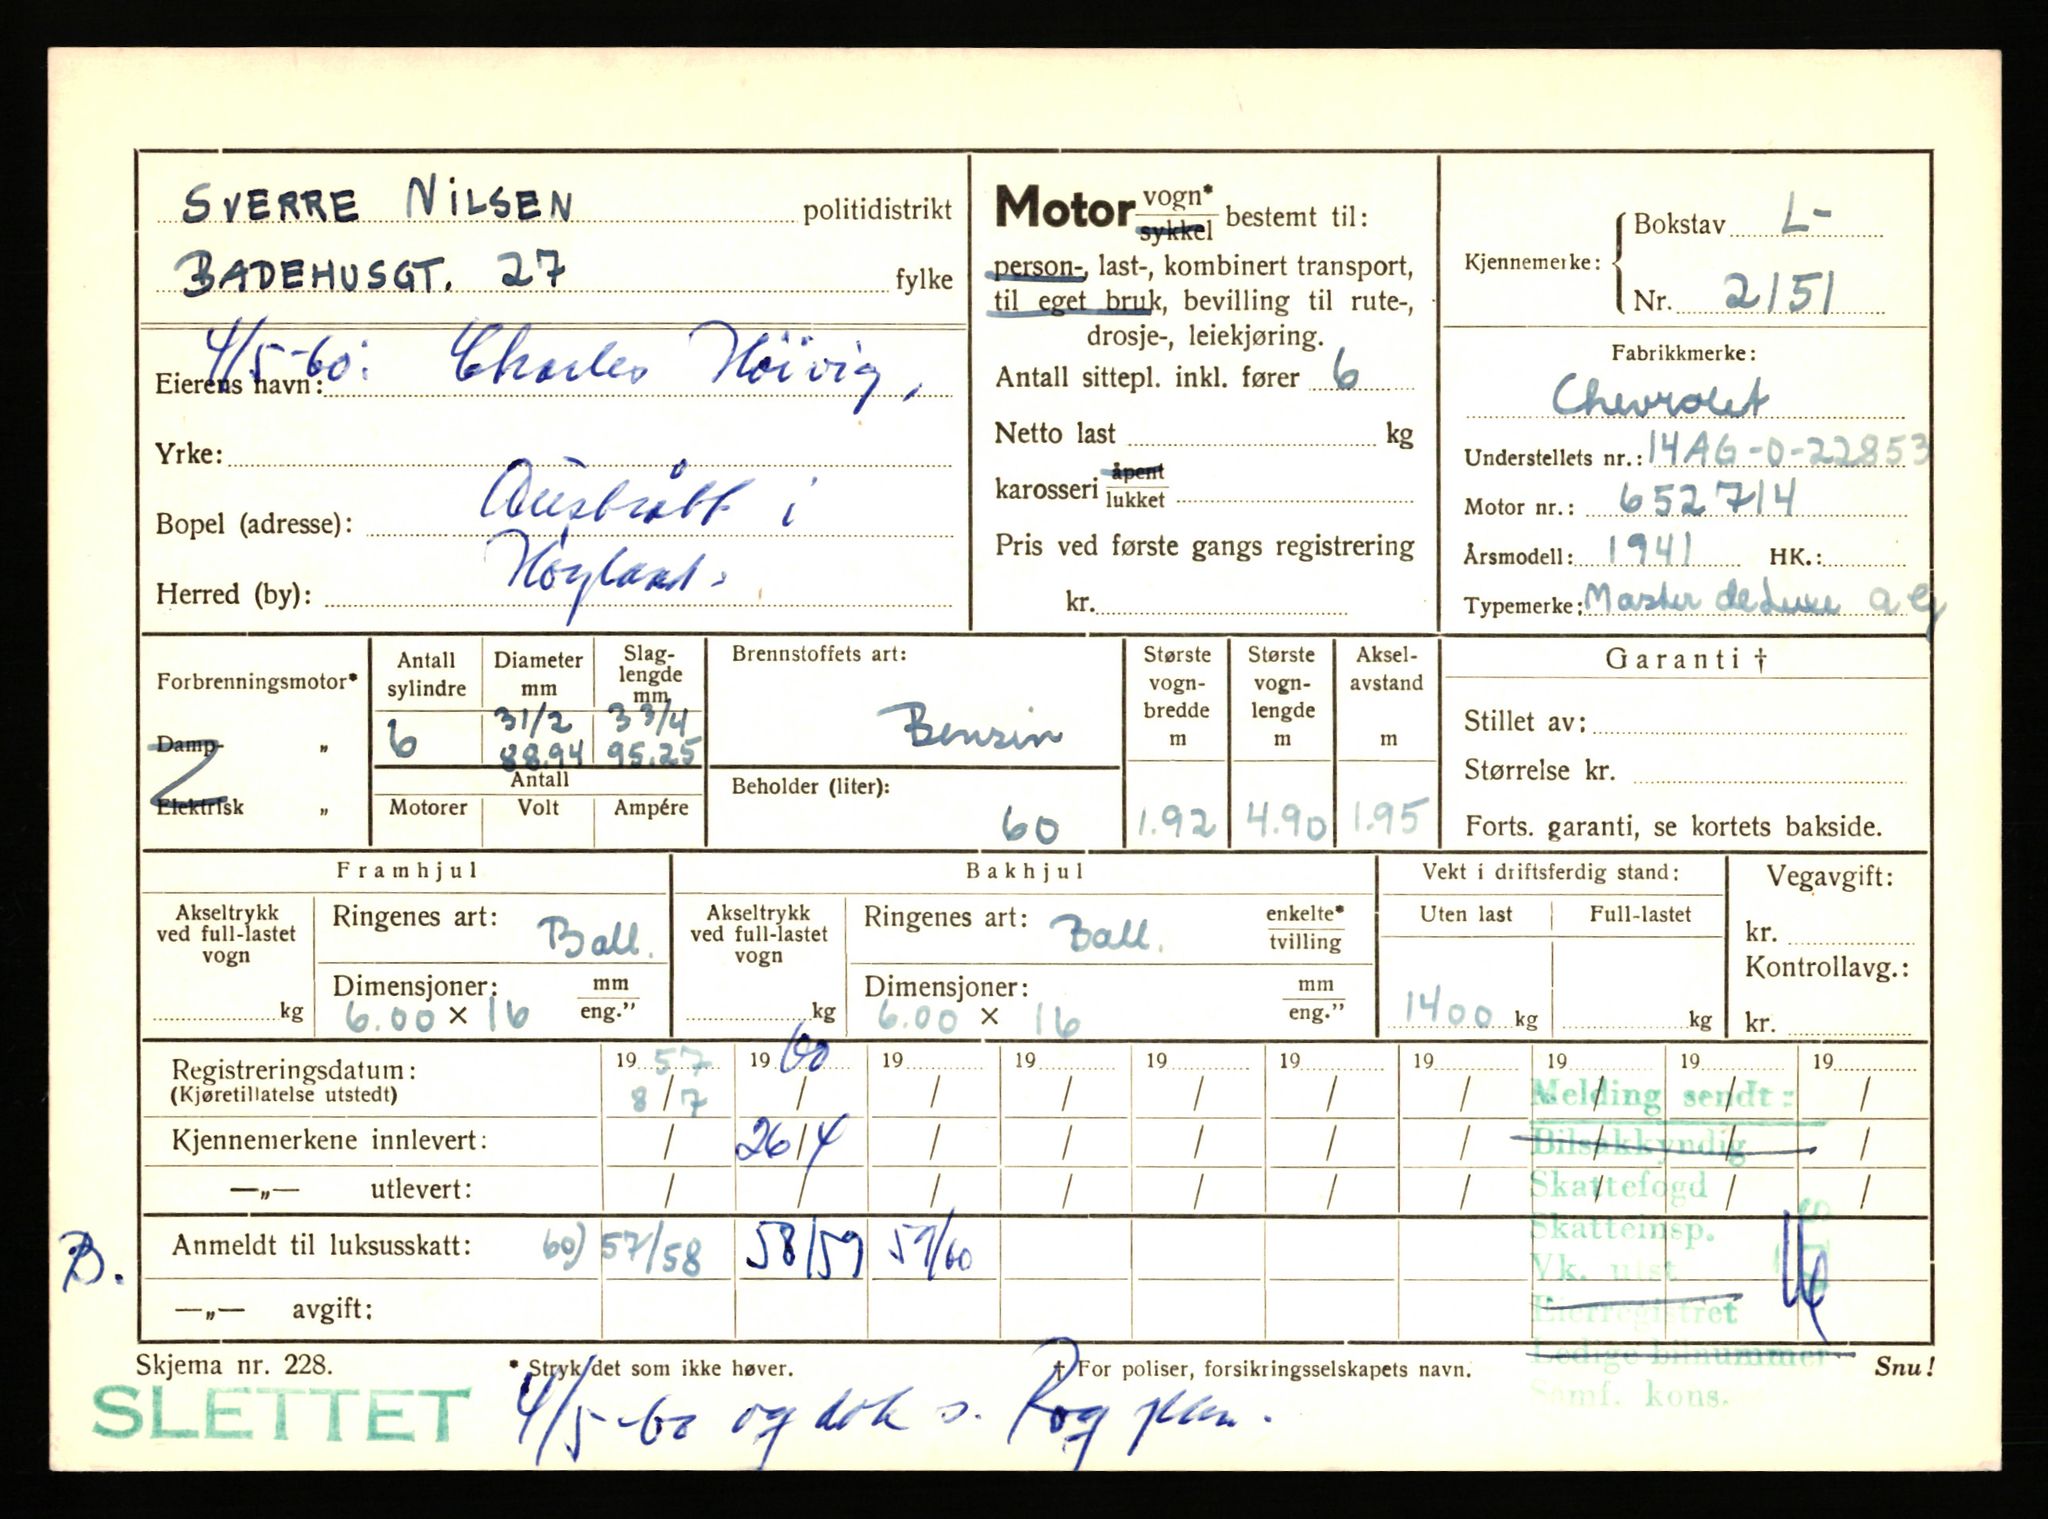 SVERRE NILSEN politidistrikt
BADEHUSGT. 27 fylke
4/5-60: Charles Höivig,
Eierens navn:
Yrke:
Austrått i
Bopel (adresse):
Høyland.
Herred (by):
Motor vogn* sykkel bestemt til:
person-, last-, kombinert transport,
til eget bruk, bevilling til rute-,
drosje-, leiekjøring.
Antall sittepl. inkl. fører 6
Netto last kg
karosseri åpent lukket
Pris ved første gangs registrering
kr.
Kjennemerke: Bokstav L-
Nr. 2151
Fabrikkmerke:
Chevrolet
Understellets nr.: 14AG-0-22853
Motor nr.: 652714
Årsmodell: 1941 HK.:
Typemerke: Master de Luxe ag
Forbrenningsmotor*
Damp- „
Elektrisk „
Antall sylindre
6
Diameter mm
3 1/2
88.94
Slaglengde mm
3 3/4
95.25
Antall
Motorer Volt Ampére
Brennstoffets art:
Bensin
Beholder (liter):
60
Største vognbredde m
1.92
Største vognlengde m
4.90
Akselavstand m
1.95
Garanti †
Stillet av:
Størrelse kr.
Forts. garanti, se kortets bakside.
Framhjul
Akseltrykk ved full-lastet vogn
kg
Ringenes art: Ball.
Dimensjoner: mm eng.”
6.00 × 16
Bakhjul
Akseltrykk ved full-lastet vogn
kg
Ringenes art: Ball. enkelte* tvilling
Dimensjoner: mm eng.”
6.00 × 16
Vekt i driftsferdig stand:
Uten last Full-lastet
1400 kg kg
Vegavgift:
kr.
Kontrollavg.:
kr.
Registreringsdatum: 19 57 19 60 19 19 19 19 19 19 19 19
(Kjøretillatelse utstedt) 8/7 / / / / / / / / /
Kjennemerkene innlevert: / 26/4 / / / / / / / /
—„— utlevert: / / / / / / / / / /
B. Anmeldt til luksusskatt: 60) 57/58 58/59 59/60
—„— avgift:
Melding sendt:
Bilsakkyndig
Skattefogd
Skatteinsp.
Vk. utst
Eierregistret
Ledige bilnummer
Samf. kons.
Skjema nr. 228. * Stryk det som ikke høver. † For poliser, forsikringsselskapets navn. Snu!
SLETTET
4/5-60 og dok s. Rog